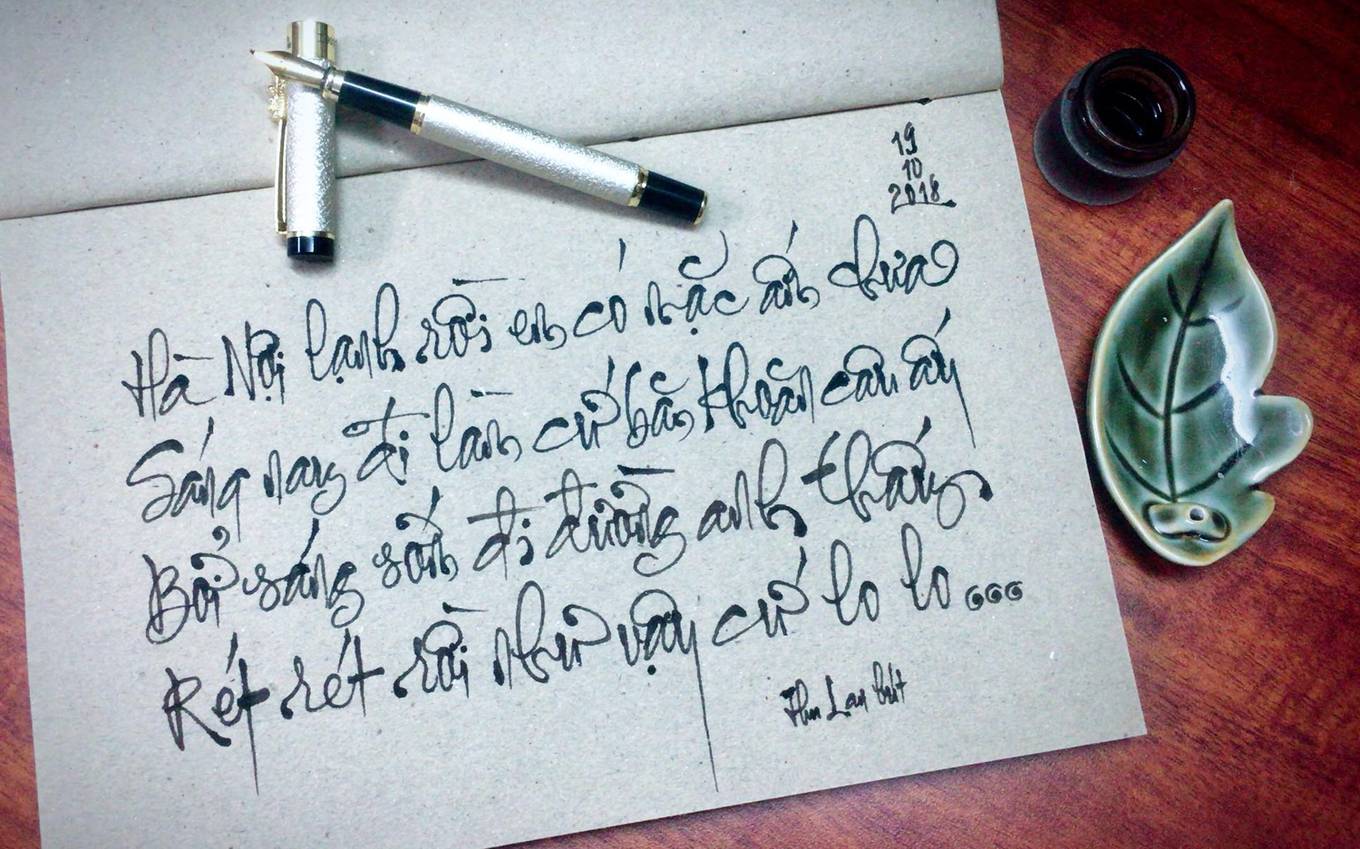 19
10
2018
Hà Nội lạnh rồi em có mặc ấm chưa
Sáng nay đi làm cứ băn khoăn câu ấy
Bởi sáng sớm đi đường anh thấy
Rét rét rồi như vậy cứ lo lo...
Lan bút